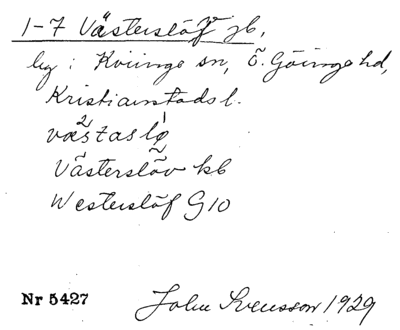 1-7 Västerslöv gb,
by i Kviinge sn, Ö. Göinge hd,
Kristianstads l.
væstaslø
Västerslöv kb
Westerslöf G10
Nr 5427
John Svensson 1929